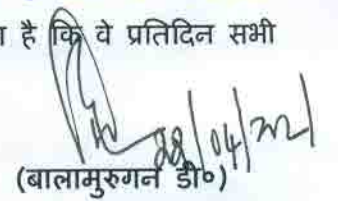 है कि वे प्रतिदिन सभी
28/04/21
(बालामुरुगन डी०)